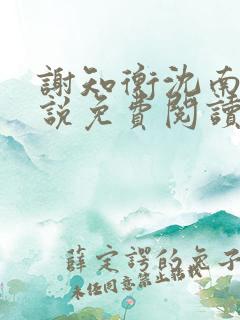 謝知衡沈南
說免費閱讀
薛定諤的兔子
未经同意禁止转载